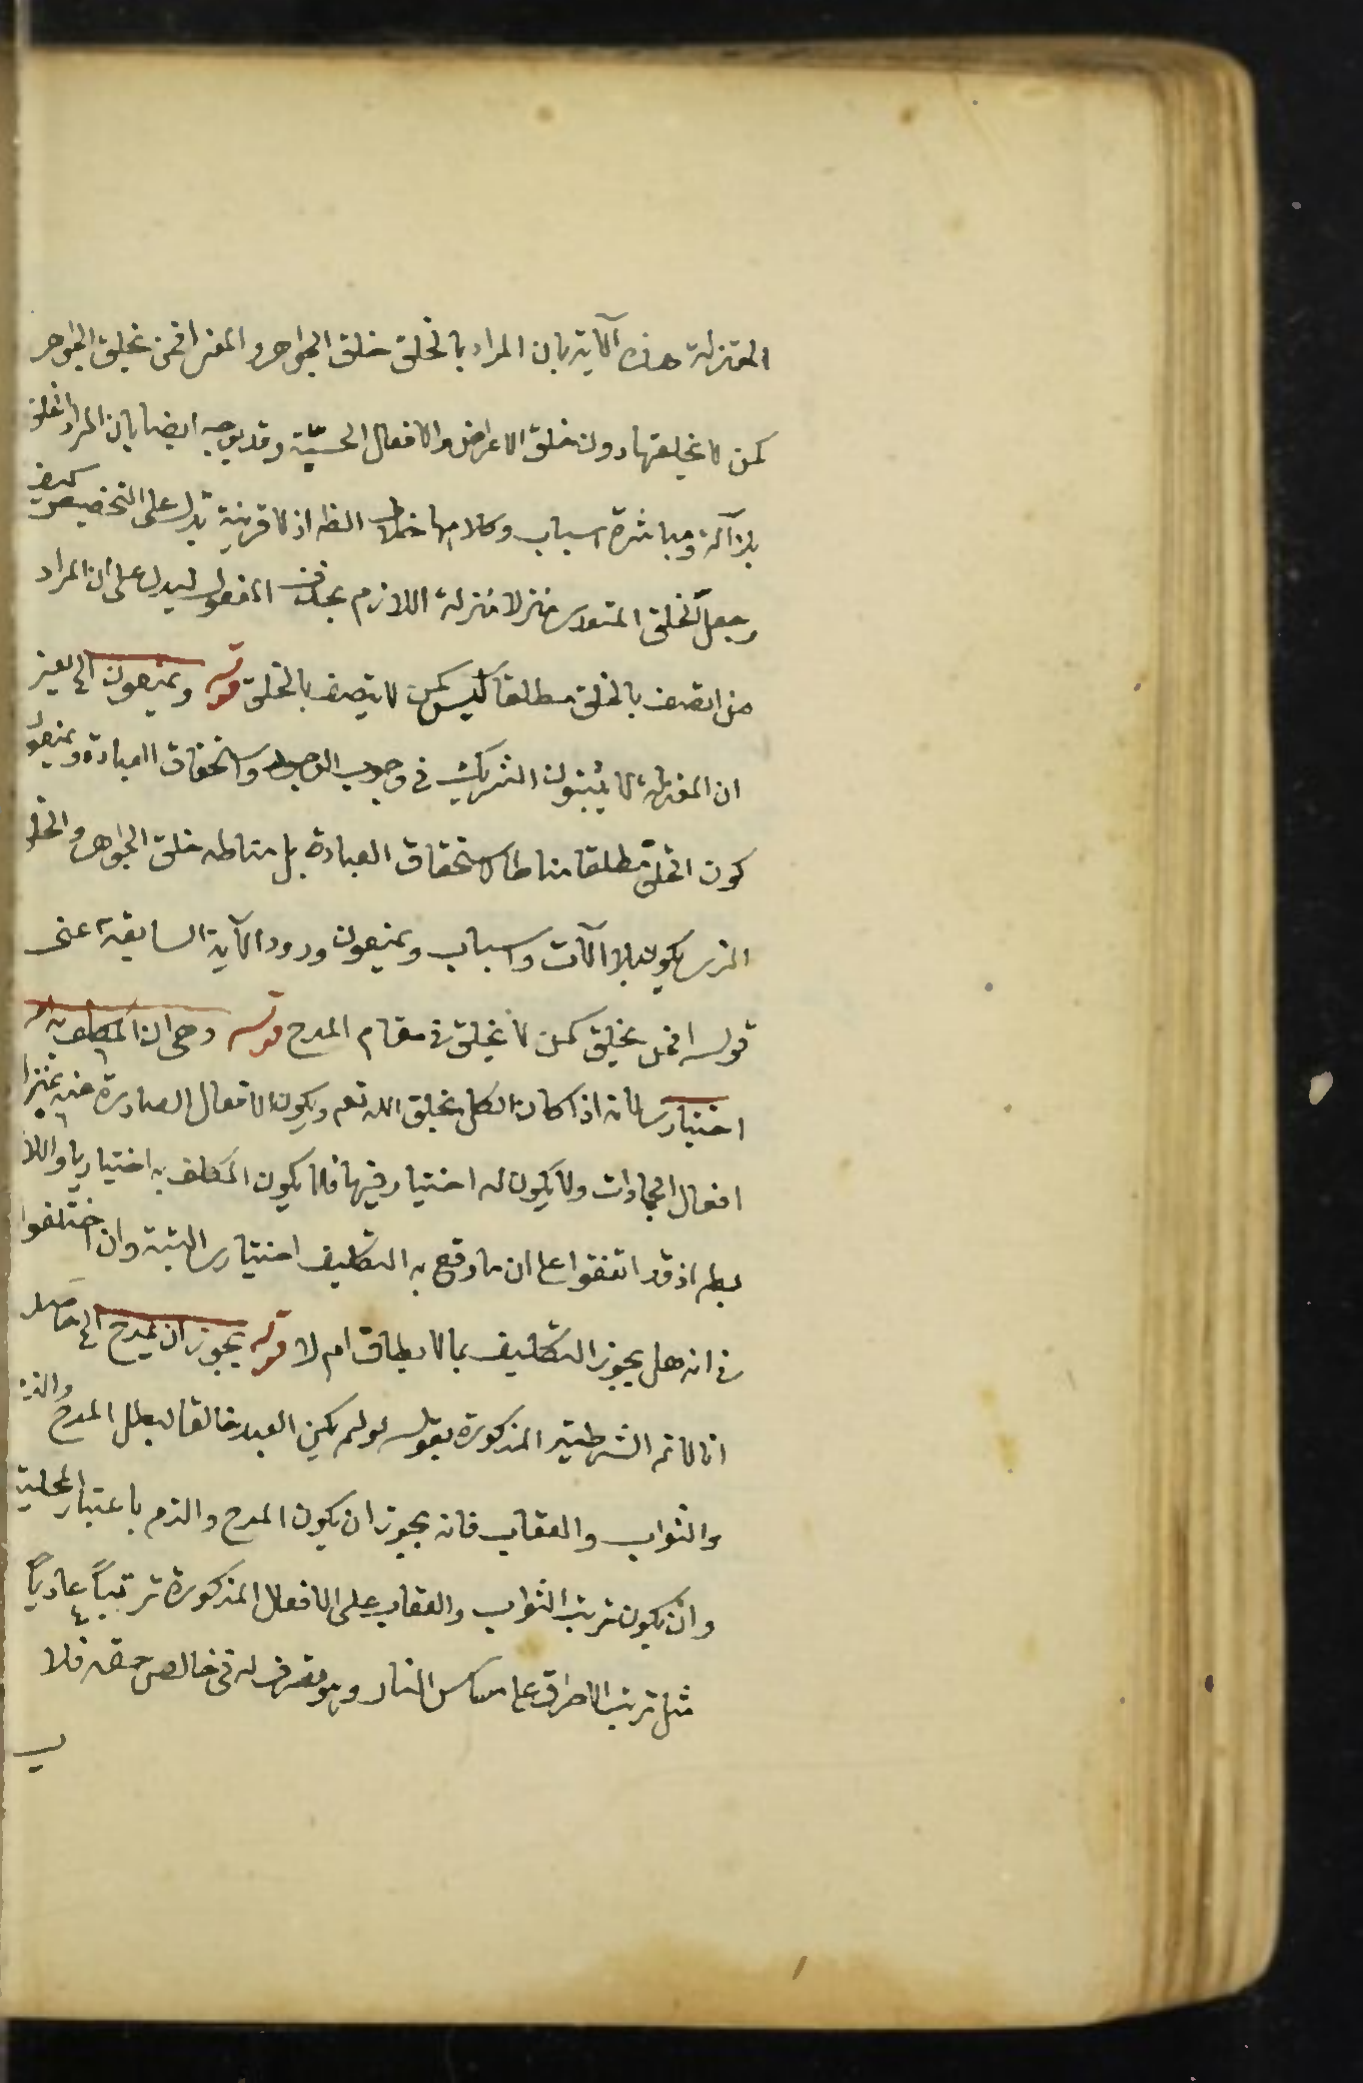 المعتزلة هذه الآية بان المراد بالخلق خلق الجواهر والمعنى افمن يخلق الجواهر
كمن لا يخلقها دون خلق الاعراض والافعال الحسية وقد يوجه ايضا بان المراد الخلق
بلا آلة ومباشرة اسباب وكلامها خلاف الظ اذ لا قرينة تدل على التخصيص كيف
وجعل الخلق المتعدى منزلا منزلة اللازم بحذف المفعول ليدل على ان المراد
من اتصف بالخلق مطلقا ليس كمن لا يتصف بالخلق قوله ويمنعون الخ يعنى
ان المعتزلة لا يثبتون الشريك فى وجوب الوجود واستحقاق العبادة ويمنعون
كون الخلق مطلقا مناطا لاستحقاق العبادة بل مناطه خلق الجواهر والخلق
الذى يكون بلا الآت واسباب ويمنعون ورود الآية السابقة اعنى
قوله افمن يخلق كمن لا يخلق فى مقام المدح قوله وهى ان المكلف به امر
اختيارى لانه اذا كان الكل بخلق الله تعم ويكون الافعال الصادرة عنه بمنزلة
افعال الجمادات ولا يكون له اختيار فيها فلا يكون المكلف به اختياريا واللازم
بط اذ قد اتفقوا على ان ما وقع به التكليف اختيارى البتة وان اختلفوا
فى انه هل يجوز التكليف بما لا يطاق ام لا قوله يجوز ان يمدح الخ حاصله
انا لانم الشرطية المذكورة بقوله لو لم يكن العبد خالقا لبطل المدح والذم
والثواب والعقاب فانه يجوز ان يكون المدح والذم باعتبار المحلية
وان يكون ترتب الثواب والعقاب على الافعال المذكورة ترتبًا عاديًا
مثل ترتب الاحراق على مساس النار وهو تصرف له فى خالص حقه فلا